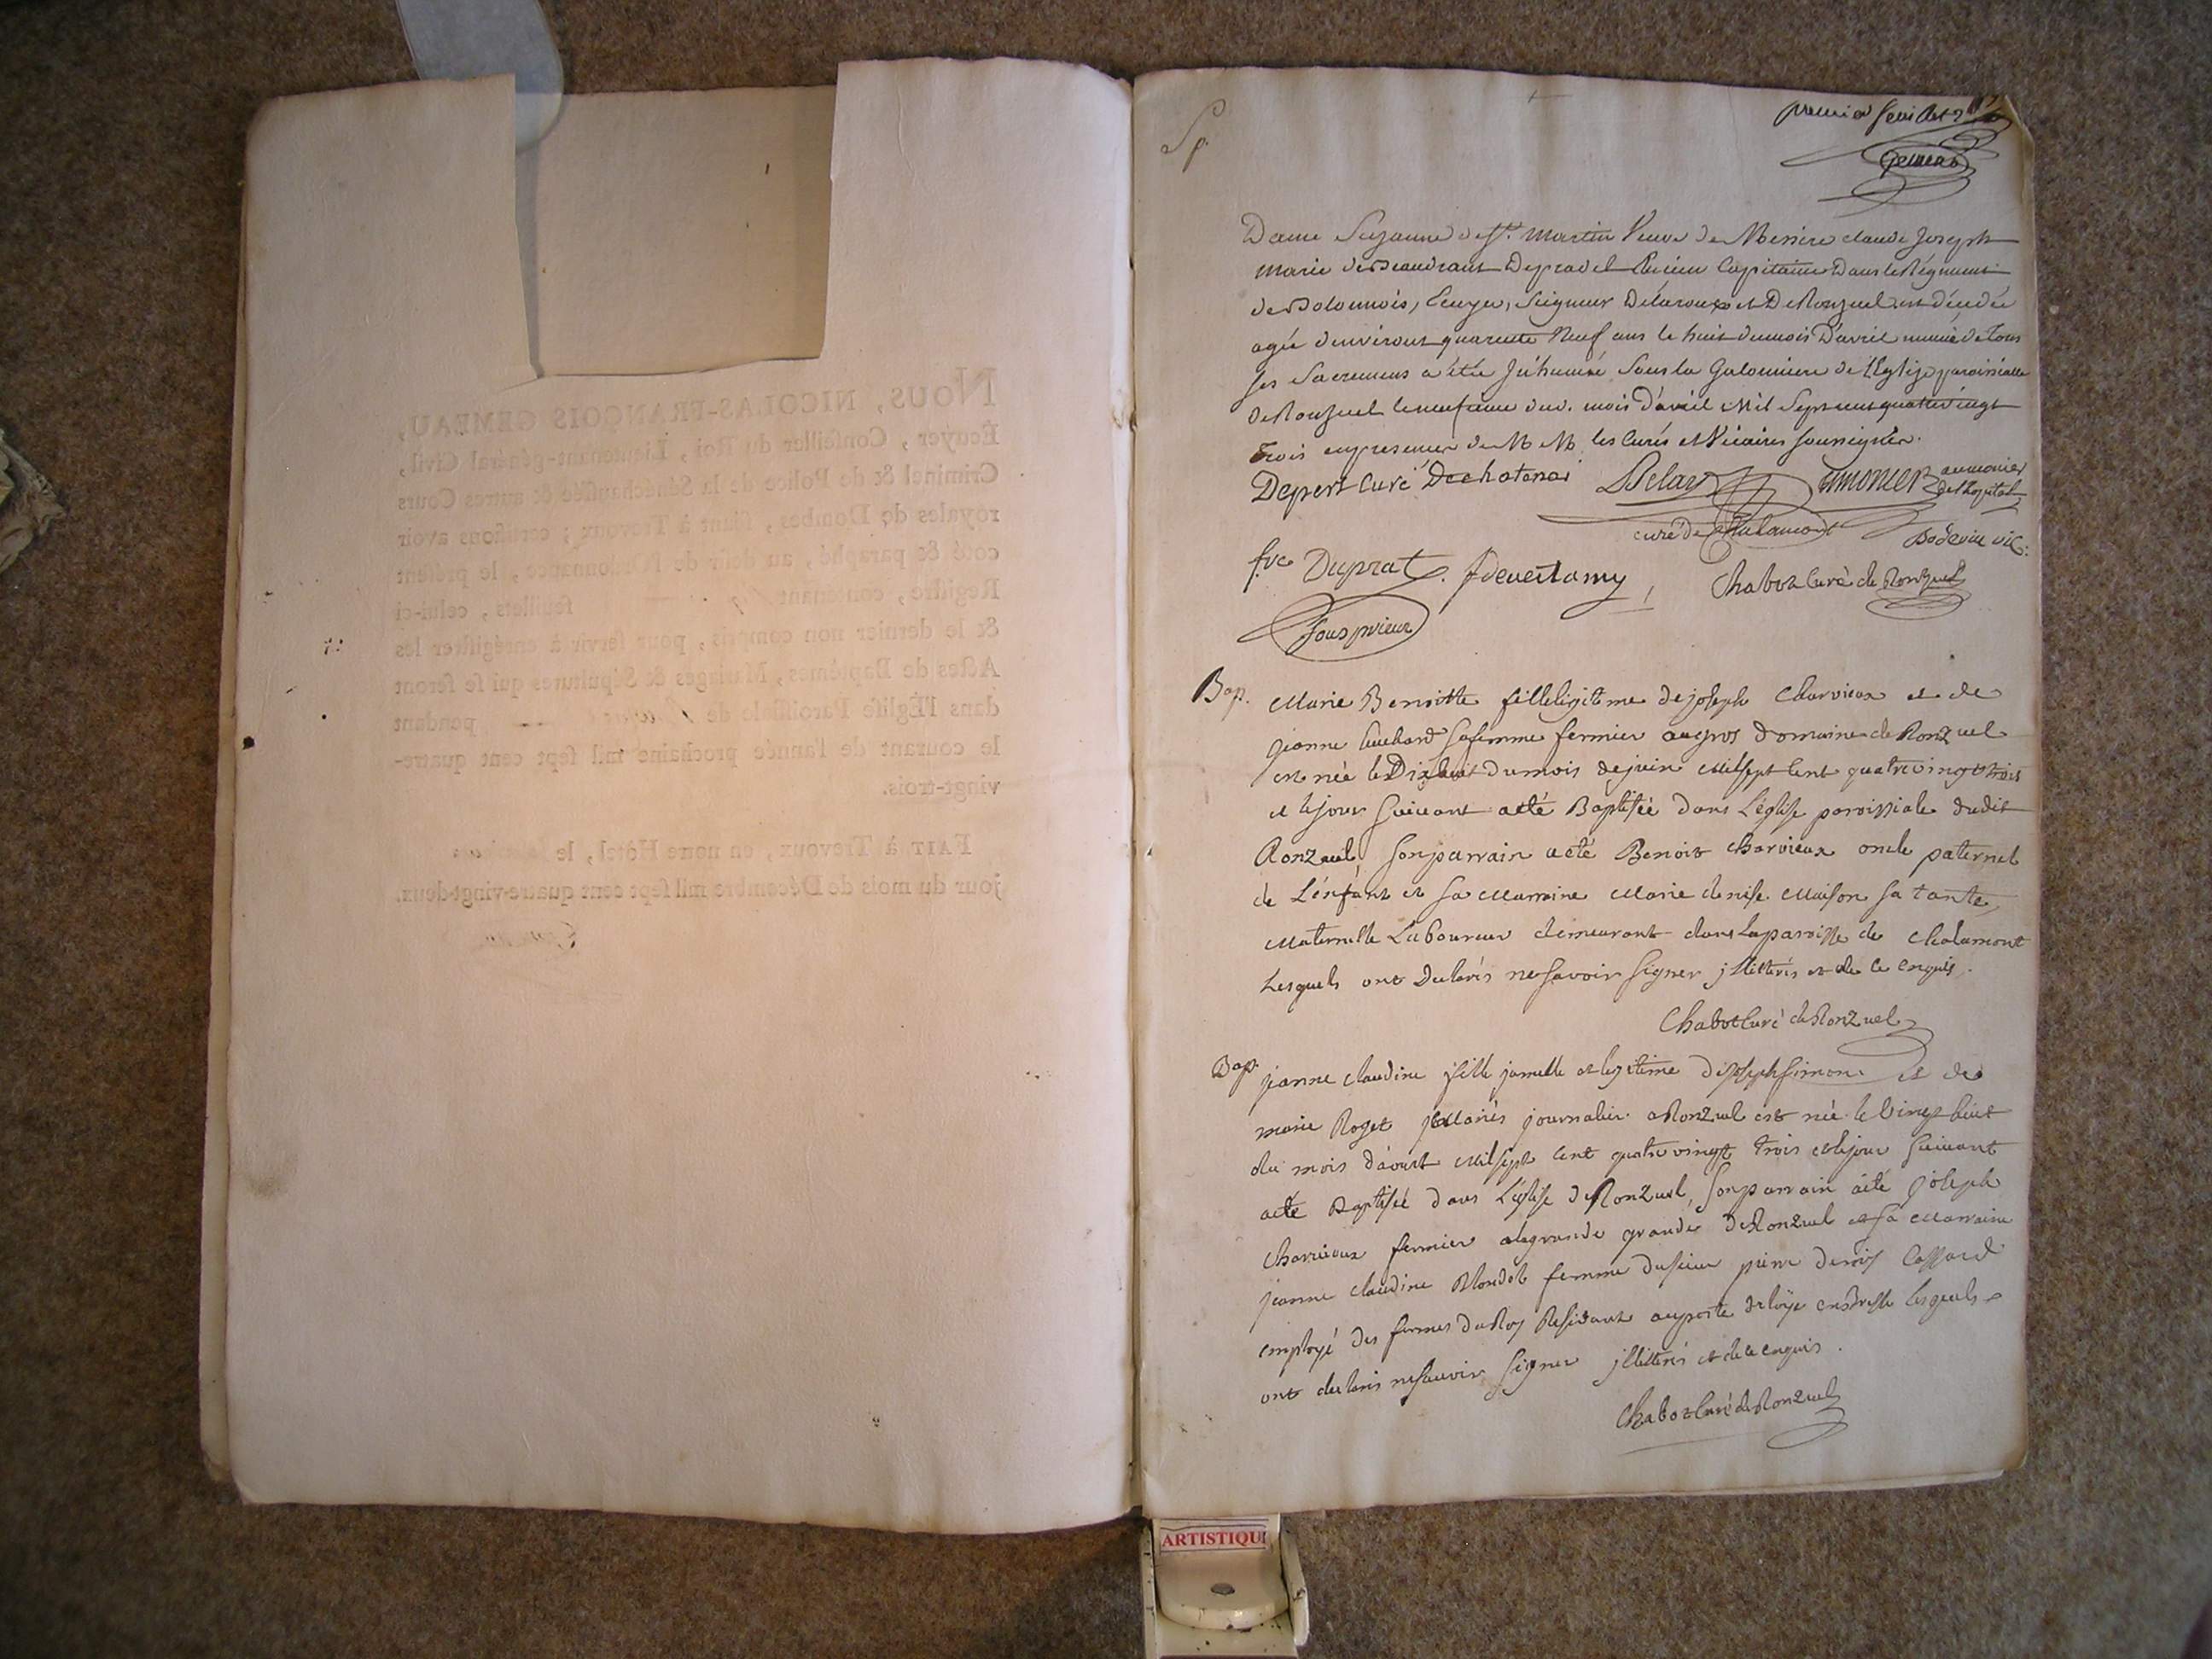 NOUS, NICOLAS-FRANÇOIS GEMEAU,
Écuyer, Conseiller du Roi, Lieutenant-général Civil,
Criminel & de Police de la Sénéchaussée & autres Cours
royales de Dombes, séant à Trevoux; certifions avoir
coté & paraphé, au desir de l'Ordonnance, le présent
Registre, contenant feuillets, celui-ci
& le dernier non compris, pour servir à enrégistrer les
Actes de Baptêmes, Mariages & Sépultures qui se feront
dans l'Église Paroissiale de pendant
le courant de l'année prochaine mil sept cent quatre-
vingt-trois.
FAIT à Trevoux, en notre Hôtel, le
jour du mois de Décembre mil sept cent quatre-vingt-deux.
premier feuillet
gemeau
Sp.
Dame Suzanne de St. Martin Veuve de Messire claude Joseph
marie de Beaudrant Depradel Ancien Capitaine Dans le Régiment
de Boulonnois, Ecuyer, Seigneur Delaroux et De Ronzuel est décédée
agée d'environt quarente Neuf ans le huit du mois D'avril munie de Tous
ses Sacremens a étée Inhumée Sous la Galonniere de l'Eglise paroissialle
de Ronzuel le neufieme dud. mois d'avril Mil Sept cent quattre vingt
Trois en presence de M M les Curés et Vicaires soussignés.
Depert Curé De chatenai Delay Aimonier aumonier
de l'hopital
curé de Chalamont Bodevin vic:
fre Duprat. fdevertamy Chabot Curé de Ronzuel
sous prieur
Bap. Marie Benoitte fille ligitime de joseph Charvieux et de
jeanne Guichard sa femme fermier au gros Domaine de Ronzuel
est née le Dixhuit du mois de juin Mil sept cent quatre vingt trois
et le jour suivant a eté Baptisée dans L'église paroissiale dudit
Ronzuel son parrain a eté Benoit charvieux oncle paternel
de L'enfant et sa Marraine Marie denise Maison sa tante
Maternelle Laboureur demeurant dans la paroisse de Chalamont
Lesquels ont Declarés ne savoir signer jllitterés et de ce enquis.
Chabot Curé de Ronzuel
Bap. jeanne claudine fille jumelle et legitime de joseph Simon et de
marie Roget Mariés journalier a Ronzuel est née le Vingt huit
du mois d'aoust Mil sept cent quatre vingt trois et le jour suivant
a eté Baptisée dans L'église de Ronzuel, son parrain a eté joseph
Charvieux fermier a la grande grande de Ronzuel et sa Marraine
jeanne claudine Blondel femme du sieur pierre denis Cassard
employé des fermes du Roy Residant au poste de loÿe en Bresse lesquels
ont declarés ne savoir signer jllitterés et de ce enquis.
Chabot Curé de Ronzuel
ARTISTIQU